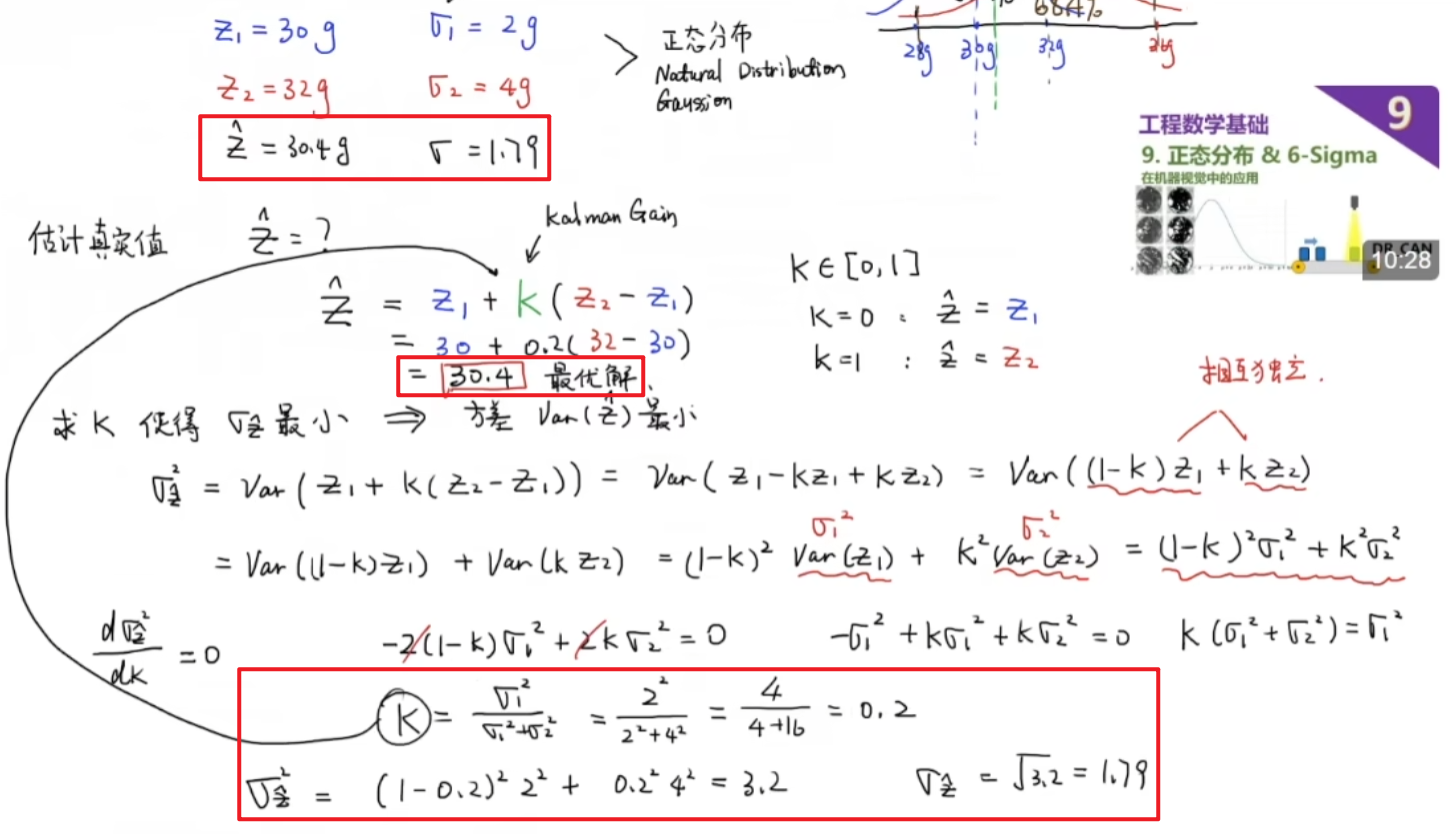 z₁ = 30g σ₁ = 2g
z₂ = 32g σ₂ = 4g
ẑ = 30.4g σ = 1.79
正态分布
Natural Distribution
Gaussion
68.4%
28g 30g 32g 36g
9
工程数学基础
9. 正态分布 & 6-Sigma
在机器视觉中的应用
DR_CAN
10:28
估计真实值 ẑ = ?
Kalman Gain
ẑ = z₁ + k(z₂ - z₁)
= 30 + 0.2(32 - 30)
= 30.4 最优解
k ∈ [0,1]
k=0 : ẑ = z₁
k=1 : ẑ = z₂
相互独立.
求 k 使得 σẑ 最小 ⇒ 方差 Var(ẑ) 最小
σẑ² = Var(z₁ + k(z₂-z₁)) = Var(z₁-kz₁+kz₂) = Var((1-k)z₁ + kz₂)
σ₁² σ₂²
= Var((1-k)z₁) + Var(kz₂) = (1-k)² Var(z₁) + k² Var(z₂) = (1-k)²σ₁² + k²σ₂²
dσẑ²/dk = 0 -2(1-k)σ₁² + 2kσ₂² = 0 -σ₁² + kσ₁² + kσ₂² = 0 k(σ₁²+σ₂²) = σ₁²
k = σ₁²/(σ₁²+σ₂²) = 2²/(2²+4²) = 4/(4+16) = 0.2
σẑ² = (1-0.2)² 2² + 0.2² 4² = 3.2 σẑ = √3.2 = 1.79